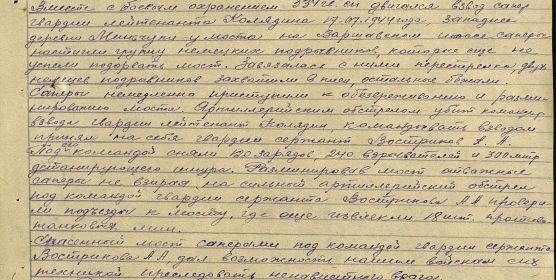 Вместе с боевым охранением 334 с.д. двигался взвод сапер
гвардии лейтенанта Колядина 17.07.1944 года, западнее
деревни у моста на Варшавском шоссе саперы
настигли группу немецких подрывников, которые еще не
успели подорвать мост. Завязалась с ними перестрелка, двух
немцев подрывников захватили в плен, остальные бежали.
Саперы немедленно приступили к обезвреживанию и разми-
нированию моста. Артиллерийским обстрелом убит командир
взвода гвардии лейтенант Колядин, командывать взводом
принял на себя гвардии сержант Востриков А. А.
Под его командой сняли 120 зарядов, 240 взрывателей и 300 метр
детанирующего шнура. Разминировав мост отважные
саперы не взирая на сильный артиллерийский обстрел
под командой гвардии сержанта Вострикова А А провери-
ли подъезды к мосту, где еще извлекли 18 шт. противо
танковых мин.
Спасенный мост саперами под командой гвардии сержанта
Вострикова А А, дал возможность нашим войскам с их
техникой преследовать ненавистного врага.